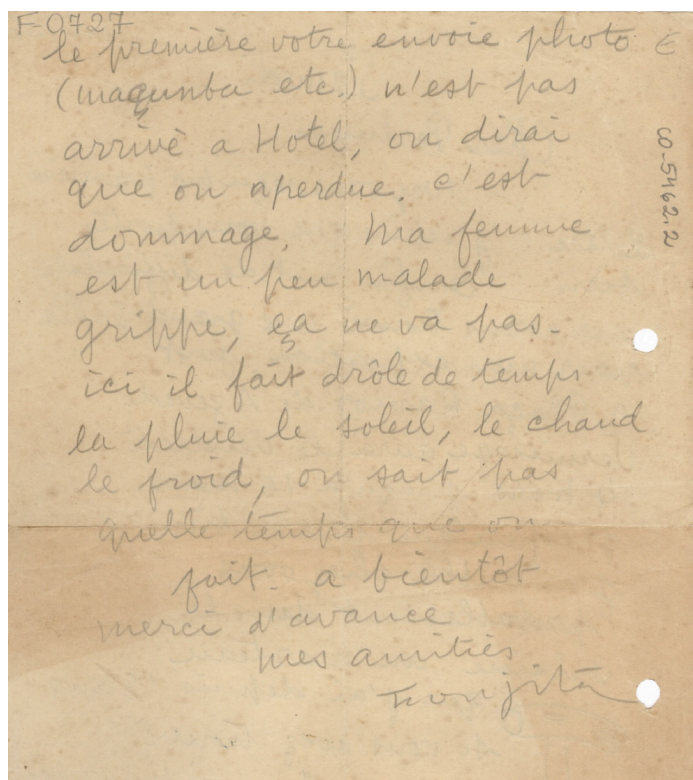 F-0727
le première votre envoie photo E
(maçumba etc.) n'est pas
arrivè a Hotel, on dirai
que on aperdue. c'est
dommage, Ma femme
est un peu malade
grippe, ça ne va pas-
ici il fait drôle de temps
la pluie le soleil, le chaud
le froid, on sait pas
quelle temps que on
fait. a bientôt
merci d'avance
mes amitiés
Foujita
CO-5462.2